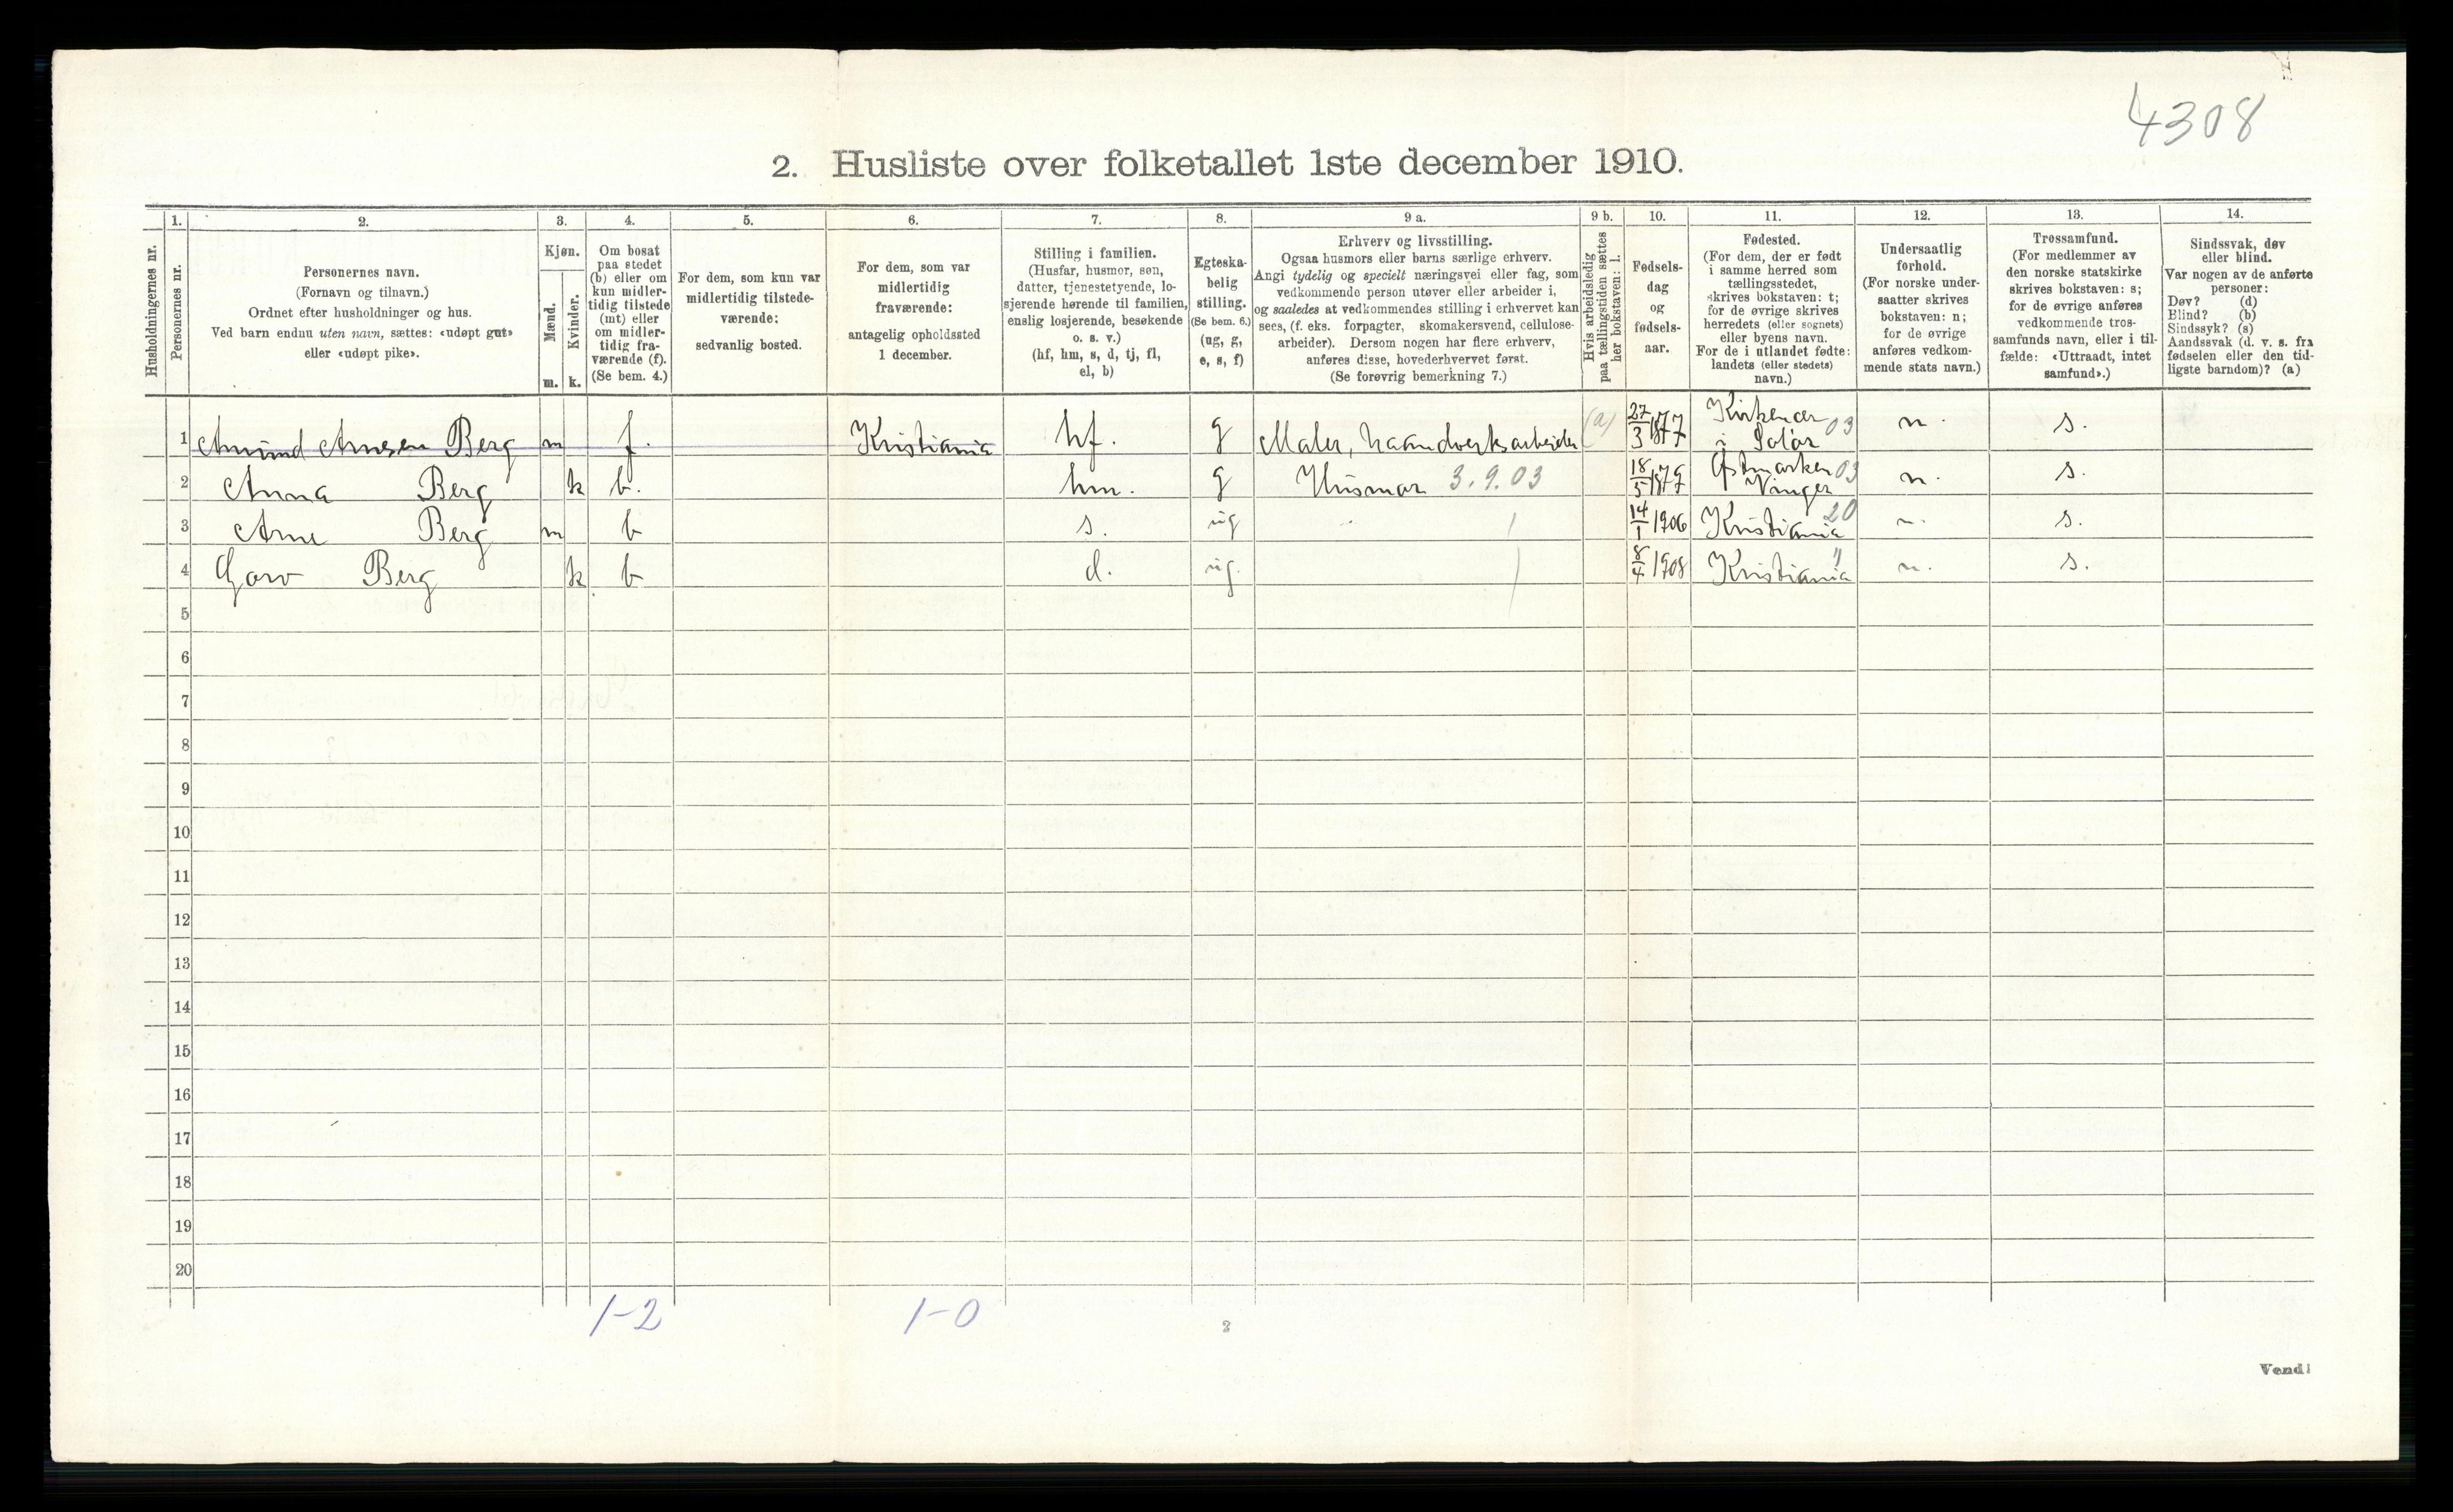 4308
2. Husliste over folketallet 1ste december 1910.
Husholdningernes nr.
1.
Personernes nr.
2.
Personernes navn.
(Fornavn og tilnavn.)
Ordnet efter husholdninger og hus.
Ved barn endnu uten navn, sættes: «udøpt gut»
eller «udøpt pike».
3.
Kjøn.
Mænd.
Kvinder.
m. k.
4.
Om bosat
paa stedet
(b) eller om
kun midler-
tidig tilstede
(mt) eller
om midler-
tidig fra-
værende (f).
(Se bem. 4.)
5.
For dem, som kun var
midlertidig tilstede-
værende:
sedvanlig bosted.
6.
For dem, som var
midlertidig
fraværende:
antagelig opholdssted
1 december.
7.
Stilling i familien.
(Husfar, husmor, søn,
datter, tjenestetyende, lo-
sjerende hørende til familien,
enslig losjerende, besøkende
o. s. v.)
(hf, hm, s, d, tj, fl,
el, b)
8.
Egteska-
belig
stilling.
(Se bem. 6.)
(ug, g,
e, s, f)
9 a.
Erhverv og livsstilling.
Ogsaa husmors eller barns særlige erhverv.
Angi tydelig og specielt næringsvei eller fag, som
vedkommende person utøver eller arbeider i,
og saaledes at vedkommendes stilling i erhvervet kan
sees, (f. eks. forpagter, skomakersvend, cellulose-
arbeider). Dersom nogen har flere erhverv,
anføres disse, hovederhvervet først.
(Se forøvrig bemerkning 7.)
9 b.
Hvis arbeidsledig
paa tællingstiden sættes
her bokstaven: l.
10.
Fødsels-
dag
og
fødsels-
aar.
11.
Fødested.
(For dem, der er født
i samme herred som
tællingsstedet,
skrives bokstaven: t;
for de øvrige skrives
herredets (eller sognets)
eller byens navn.
For de i utlandet fødte:
landets (eller stedets)
navn.)
12.
Undersaatlig
forhold.
(For norske under-
saatter skrives
bokstaven: n;
for de øvrige
anføres vedkom-
mende stats navn.)
13.
Trossamfund.
(For medlemmer av
den norske statskirke
skrives bokstaven: s;
for de øvrige anføres
vedkommende tros-
samfunds navn, eller i til-
fælde: «Uttraadt, intet
samfund».)
14.
Sindssvak, døv
eller blind.
Var nogen av de anførte
personer:
Døv? (d)
Blind? (b)
Sindssyk? (s)
Aandssvak (d. v. s. fra
fødselen eller den tid-
ligste barndom)? (a)
1 Amund Arnesen Berg m f. Kristiania hf. g Maler, haandverksarbeider (a) 27/3 1877 Kirkenær i Solør 03 n. s.
2 Anna Berg k b. hm. g Husmor 3.9.03 18/5 1879 Østmarken Vinger 03 n. s.
3 Arne Berg m b s. ug 14/1 1906 Kristiania 20 n. s.
4 Berg k b d. ug. 8/4 1908 Kristiania " n. s.
5
6
7
8
9
10
11
12
13
14
15
16
17
18
19
20
1-2 1-0
2
Vend!